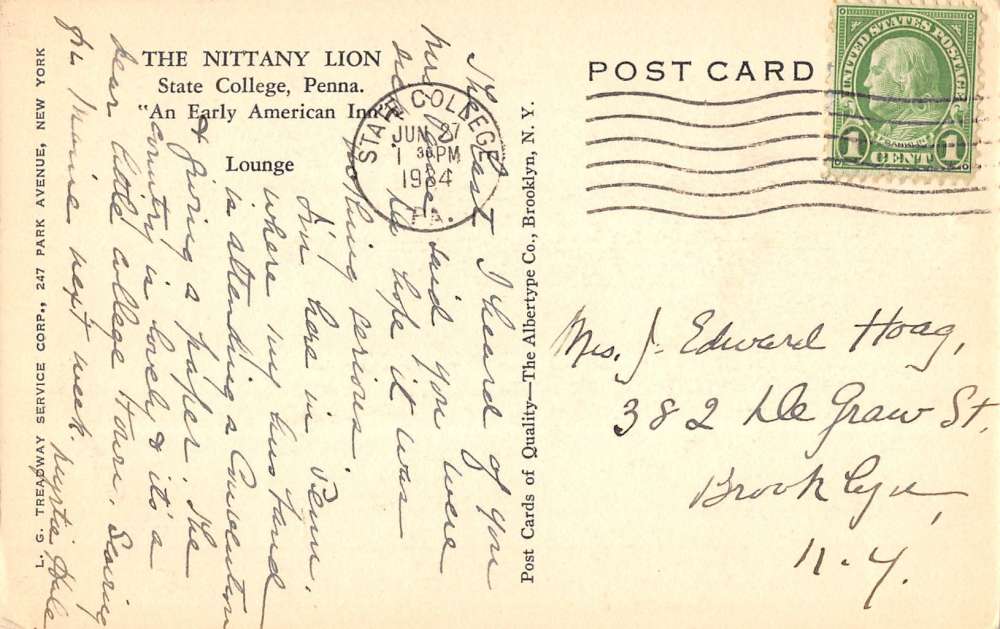 THE NITTANY LION
State College, Penna.
"An Early American Inn"
Lounge
POST CARD
UNITED STATES POSTAGE
FRANKLIN
1 CENT 1
STATE COLLEGE
JUN 27
1 30 PM
1934
PA.
The last I heard of you
Mrs. said you were
sick. We hope it was
nothing serious.
I'm here in Penn.
where my husband
is attending a Convention
& giving a paper. The
country is lovely & it's a
dear little college town. Leaving
for Maine next week.
Hale
Mrs. J. Edward Hoag,
382 De Graw St.
Brooklyn,
N.Y.
Post Cards of Quality—The Albertype Co., Brooklyn, N. Y.
L. G. TREADWAY SERVICE CORP., 247 PARK AVENUE, NEW YORK